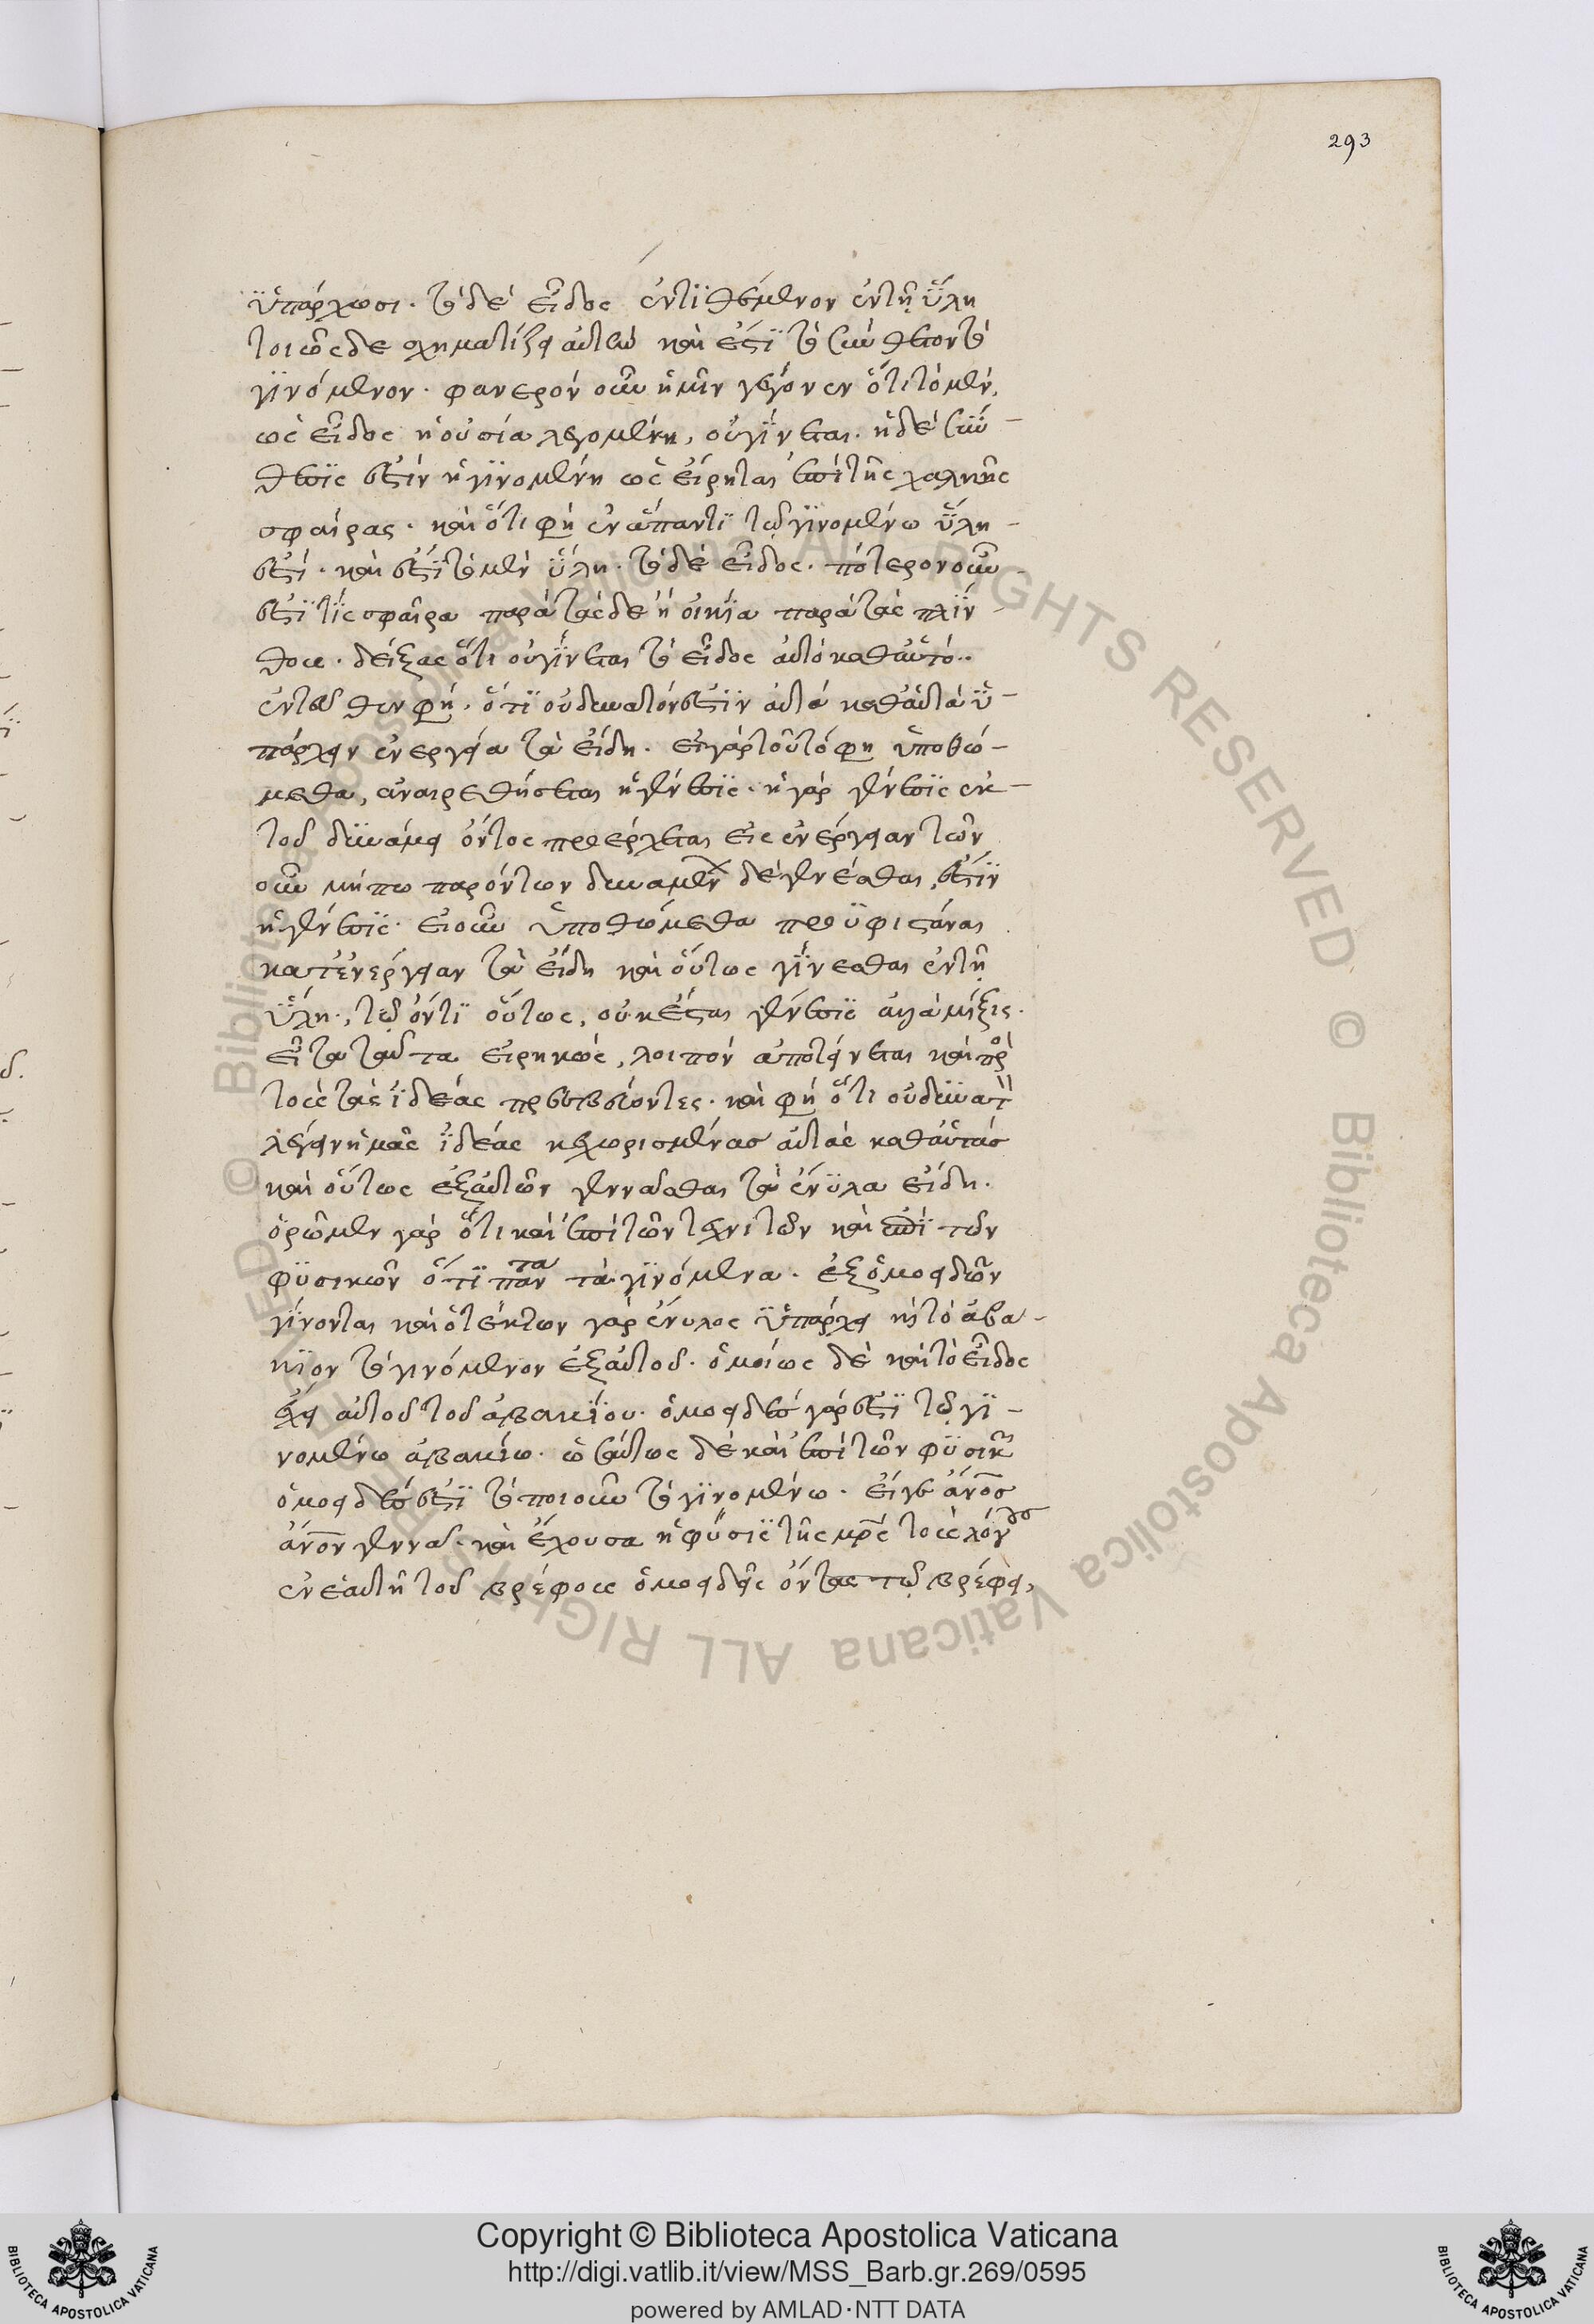 293
ὑπάρχωσι. τὸ δὲ εἶδος ἐντιθέμενον ἐν τῇ ὕλῃ
τοιῶσδε σχηματίζει αὐτὴν καὶ ἔστι τὸ σύνθετον τὸ
γινόμενον. φανερὸν οὖν ἡμῖν γέγονεν ὅτι τὸ μὲν,
ὡς εἶδος ἢ οὐσία λεγομένη, οὐ γίνεται. ἡ δὲ σύν-
θεσις ἐστὶν ἡ γινομένη ὡς εἴρηται ἐπὶ τῆς χαλκῆς
σφαίρας. καὶ ὅτι φη ἐν ἅπαντι τῷ γινομένω ὕλη
ἐστί. καὶ ἐστὶ τὸ μὲν ὕλη. τὸ δὲ εἶδος. πότερον οὖν
ἐστί τίς σφαῖρα παρὰ τάσδε ἢ οἰκία παρὰ τὰς πλίν-
θους. δείξας ὅτι οὐ γίνεται τὸ εἶδος αὐτὸ καθ' αὑτό..
ἐντεῦθεν φη. ὅτι οὐ δυνατόν ἐστιν αὐτὰ καθ' αὑτὰ ὑ-
πάρχειν ἐνεργεία τὰ εἴδη. εἰ γὰρ τοῦτό φη ὑποθώ-
μεθα, ἀναιρεθήσεται ἡ γένεσις. ἡ γὰρ γένεσις ἐκ
τοῦ δυνάμει ὄντος προέρχεται εἰς ἐνέργειαν τῶν
οὖν μήπω παρόντων δυναμένων δὲ γενέσθαι, ἐστὶν
ἡ γένεσις. εἰ οὖν ὑποθώμεθα προϋφιστάναι
κατ' ἐνέργειαν τὰ εἴδη καὶ οὕτως γίνεσθαι ἐν τῇ
ὕλη., τῷ ὄντι οὕτως, οὐκ ἔσται γένεσις ἀλλὰ μίξις.
εἶτα ταῦτα εἰρηκὼς, λοιπὸν ἀποτείνεται καὶ πρὸς
τοὺς τὰς ἰδέας πρεσβεύοντες. καὶ φη ὅτι οὐ δυνατὸν
λέγειν ἡμᾶς ἰδέας κεχωρισμένας αὐτὰς καθ' αὑτάσ
καὶ οὕτως ἐξ αὐτῶν γεννᾶσθαι τὰ ἔνυλα εἴδη.
ὁρῶμεν γὰρ ὅτι καὶ ἐπὶ τῶν τεχνιτῶν καὶ ἐπὶ τῶν
φυσικῶν ὅτι πάντα τὰ γινόμενα. ἐξ ὁμοειδῶν
γίνονται καὶ ὁ τέκτων γὰρ ἔνυλος ὑπάρχει κ̀ τὸ ἀβά-
κιον τὸ γινόμενον ἐξ αὐτοῦ. ὁμοίως δὲ καὶ τὸ εἶδος
ἔχει αὐτοῦ τοῦ ἀβακίου. ὁμοειδὲς γάρ ἐστι τῷ γι-
νομένω ἀβακίω. ὡσαύτως δὲ καὶ ἐπὶ τῶν φυσικῶν
ὁμοειδές ἐστι τὸ ποιοῦν τὸ γινομένω. εἴγε ἄνοσ
ἄνον γεννᾶ. καὶ ἔχουσα ἡ φύσις τῆς μρς τοὺς λόγους
ἐν ἑαυτῇ τοῦ βρέφους ὁμοειδεῖς ὄντας τῷ βρέφει,
Copyright © Biblioteca Apostolica Vaticana
http://digi.vatlib.it/view/MSS_Barb.gr.269/0595
powered by AMLAD·NTT DATA